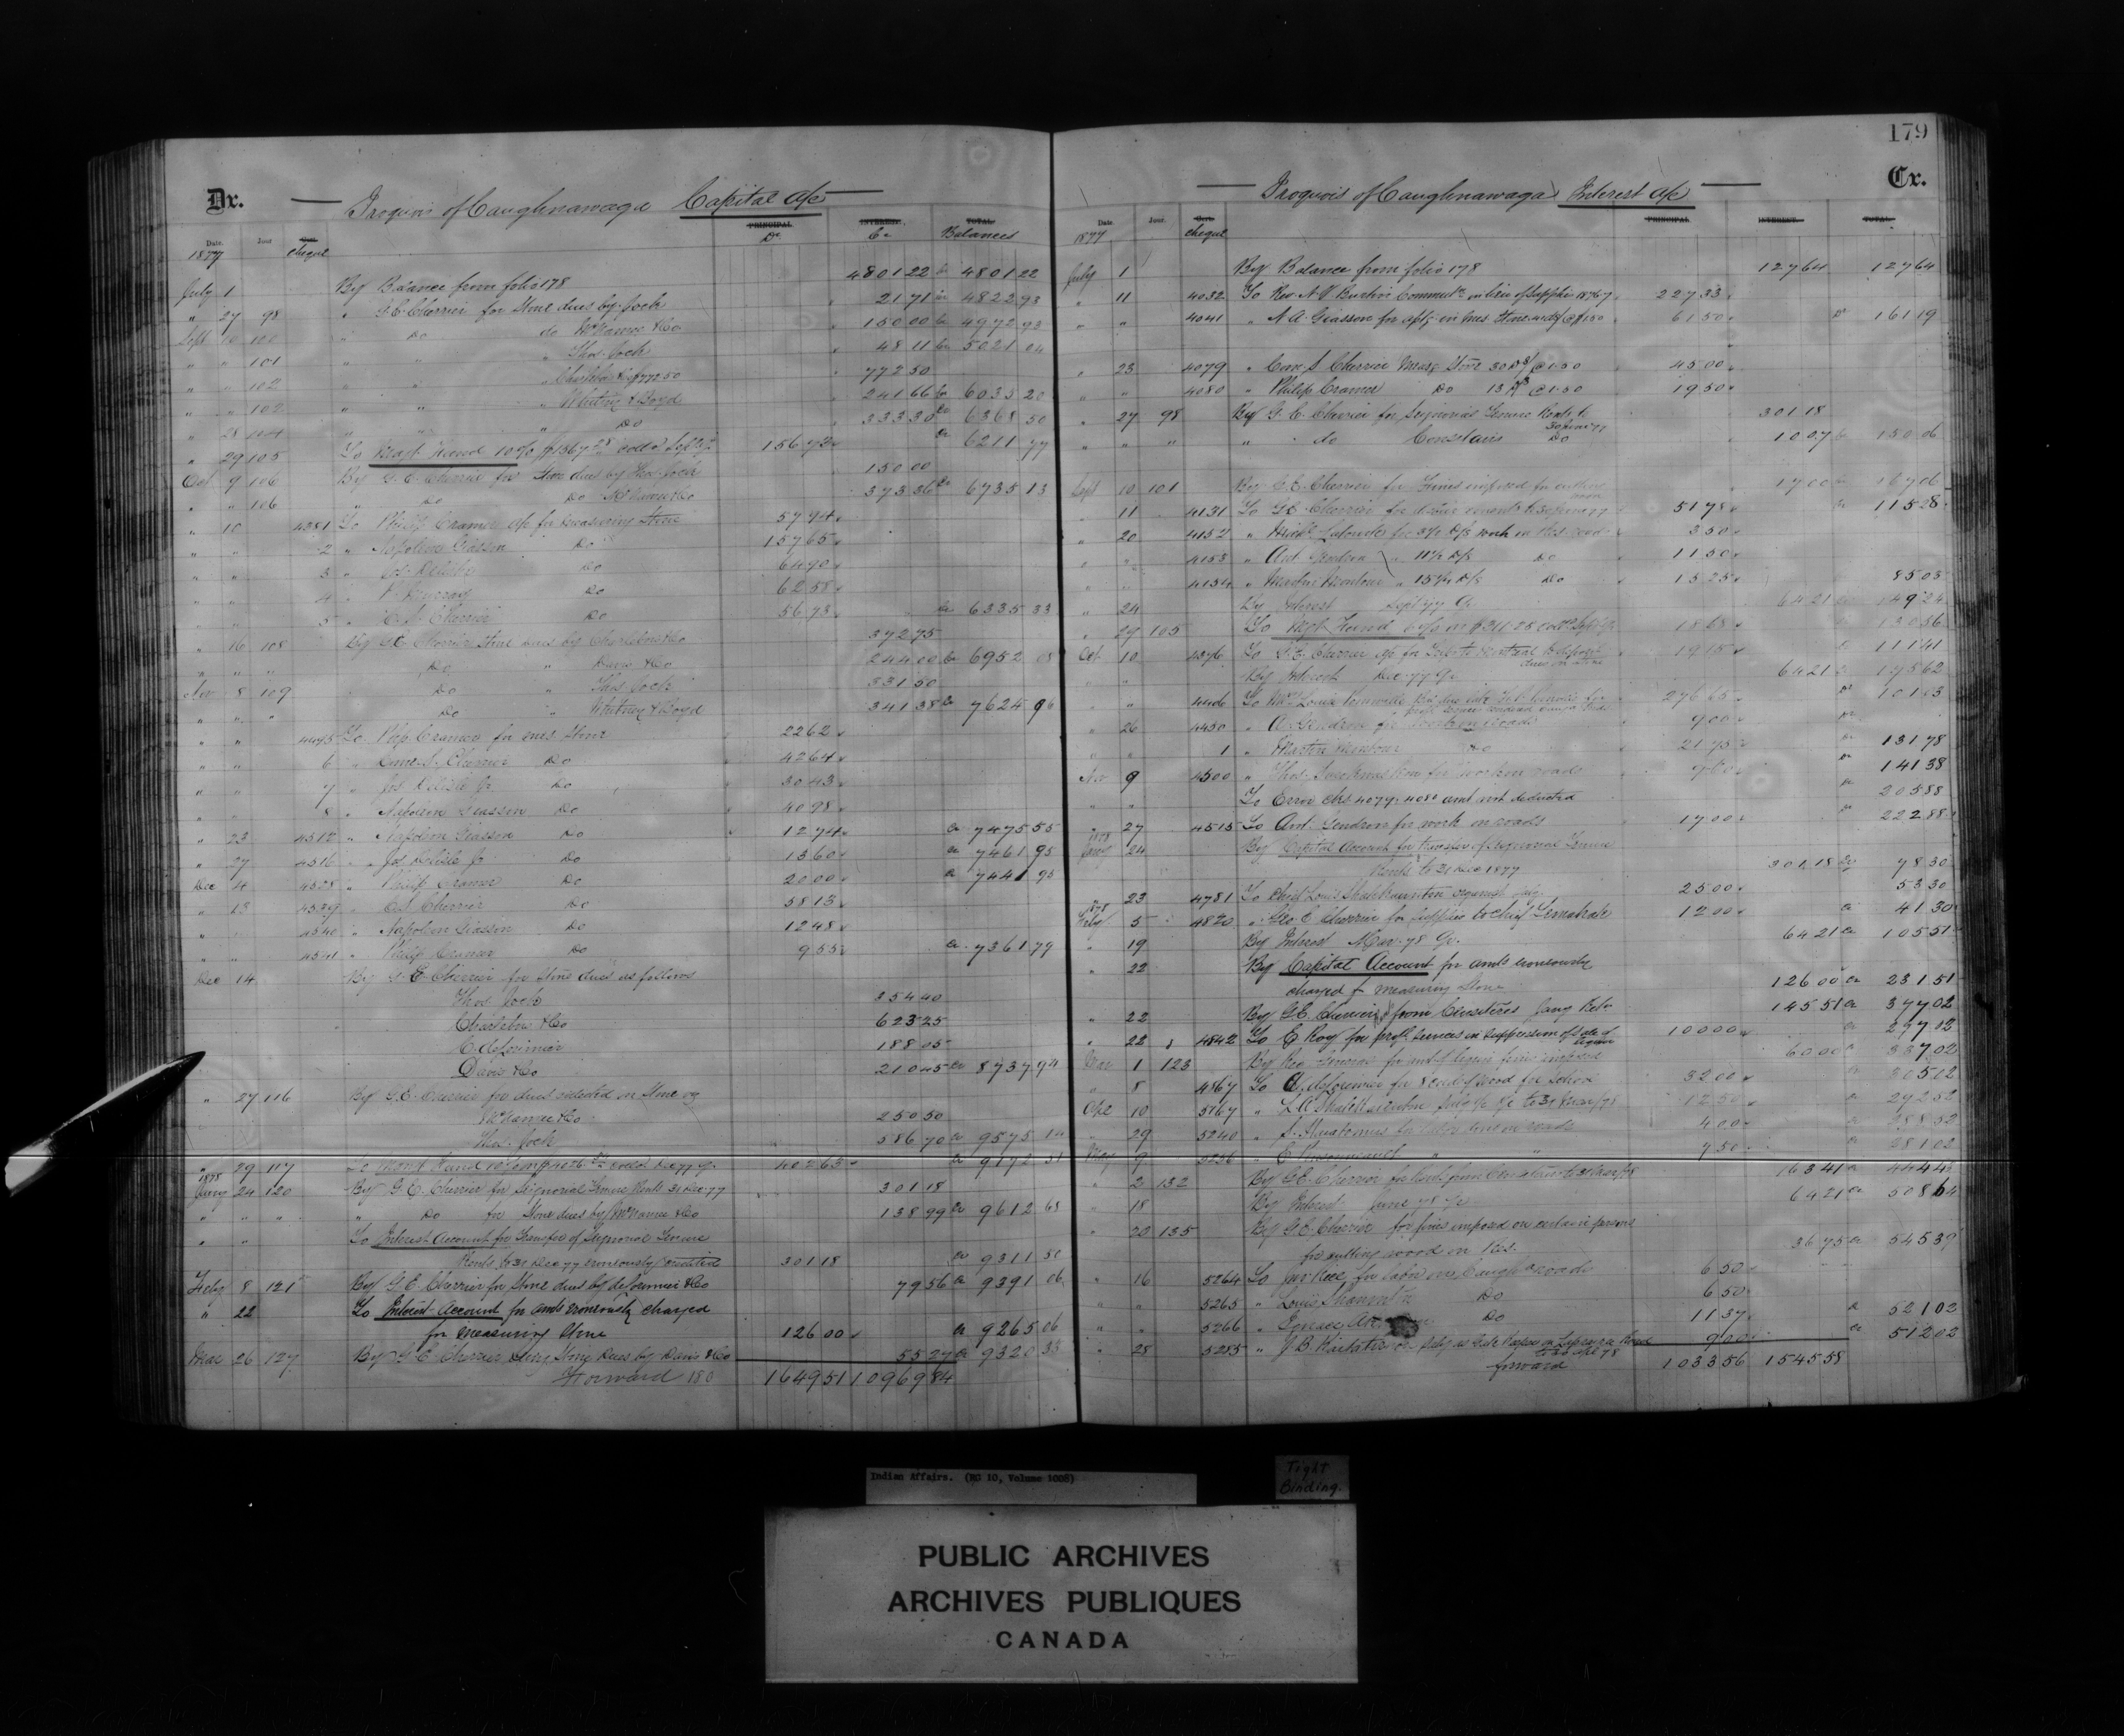 179
Dr.
Iroquois of Caughnawaga Capital a/c
Date. Jour. Cert. PRINCIPAL INTEREST. TOTAL
1877 cheque Dr Cr Balances
July 1 By Balance from folio 178 4801 22 Cr 4801 22
" 27 98 " G.E. Cherrier for Stone dues by Joch 21 71 Cr 4822 93
Sept 10 100 " Do do McNamee & Co 150 00 Cr 4972 93
" " 101 " " " Thos. Joch 48 11 Cr 5021 04
" " 102 " " 772 50
" " 102 " " " Whitney & Boyd 241 66 Cr 6035 20
" 28 104 " " " Do 333 30 Cr 6368 50
" 29 105 To Mgt Fund 10% 156 73 Cr 6211 77
Oct 9 106 By G.E. Cherrier for Stone dues by Thos. Joch 150 00
" " 106 " Do Do McNamee & Co 373 36 Cr 6735 13
" 10 4381 To Philip Cramer a/c for measuring Stone 57 94
" " 2 " Napoleon Giasson Do 157 65
" " 3 " Jos. Delisle Do 64 90
" " 4 " Murray Do 62 58
" " 5 " C.S. Cherrier Do 56 73 Cr 6335 33
" 16 108 By G.E. Cherrier Stone dues by Charlebois & Co 372 75
" " " Do " Davis & Co 244 00 Cr 6952 08
Nov 8 109 Do " Thos. Joch 331 50
" " " Do " Whitney & Boyd 341 38 Cr 7624 96
" " 4495 To Philip Cramer for meas. Stone 22 62
" " 6 " Came. S. Cherrier Do 42 64
" " 7 " Jos. Delisle Jr. Do 30 43
" " 8 " Napoleon Giasson Do 40 98
" 23 4512 " Napoleon Giasson Do 12 74 Cr 7475 55
" 27 4516 " Jos. Delisle Jr Do 13 60 Cr 7461 95
Dec 4 4528 " Philip Cramer Do 20 00 Cr 7441 95
" 13 4539 " C.S. Cherrier Do 58 13
" " 4540 " Napoleon Giasson Do 12 48
" " 4541 " Philip Cramer Do 9 55 Cr 7361 79
Dec 14 By G.E. Cherrier for Stone dues as follows
Thos. Joch 354 40
Charlebois & Co 623 25
C. deLorimier 188 05
Davis & Co 210 45 Cr 8737 94
" 27 116 By G.E. Cherrier for dues collected on Stone
McNamee & Co 250 50
Thos. Joch 586 70 Cr 9575 14
" 29 117 To Mgmt Fund 10% 402 63 Cr 9172 51
1878
Jany 24 120 By G.E. Cherrier for Signorial Tenure Rents 31 Dec 77 301 18
" " " " Do for Stone dues by McNamee & Co 138 99 Cr 9612 68
" " To Interest Account for Transfer of Signorial Tenure
Rents to 31 Dec 77 erroneously credited 301 18 Cr 9311 50
Feby 8 121 By G.E. Cherrier for Stone dues by deLorimier & Co 79 56 Cr 9391 06
" 22 To Interest Account for amts erroneously charged
for measuring Stone 126 00 Cr 9265 06
Mar 26 127 By G.E. Cherrier being Stone Dues by Davis & Co 55 27 Cr 9320 33
Forward 180 1649 51 10969 84
Cr.
Iroquois of Caughnawaga Interest a/c
Date Jour. Cert. PRINCIPAL INTEREST. TOTAL.
1877 cheque
July 1 By Balance from folio 178 127 64 127 64
" 11 4032 To Rev. N.V. Burtin's 227 33
" " 4041 " N.A. Giasson for 61 50 Dr 161 19
" 23 4079 " Cam. S. Cherrier Meas'g Stone 30 D/s @ 1.50 45 00
" " 4080 " Philip Cramer Do 13 D/s @ 1.50 19 50
" 27 98 By G.E. Cherrier for Seignorial Tenure Rents to
30 June 77 301 18
" " " " do Censitaires Do 10 07 Cr 150 06
Sept 10 101 By G.E. Cherrier for Fines imposed for cutting
17 00 Cr 167 06
" 11 4131 To G.E. Cherrier for 51 78 Cr 115 28
" 20 4152 " Lalonde for 3½ D/s work on roads 3 50
" " 4153 " Ant. Gendron " 11½ D/s Do 11 50
" " 4154 " " 15¼ D/s Do 15 25 85 03
" 24 By Interest Sept 77 Qr. 64 21 Cr 149 24
" 29 105 To Mgt. Fund 6% on $311.25 18 68 130 56
Oct 10 4376 To G.E. Cherrier 19 15 Cr 111 41
" " By Interest Dec 77 Qr 64 21 Cr 175 62
" " 4406 To 276 65 Dr
" 26 4450 " A. Gendron for Work on roads 9 00 Dr
" " 1 " Martin Do 21 75 Dr 131 78
Nov 9 4500 " Thos. for Work on roads 9 60 Dr 141 38
" " To Error chs. 4079 & 4080 amt. not deducted Dr 205 88
" 27 4515 To Ant. Gendron for work on roads 17 00 Dr 222 88
1878
Jany 24 By Capital Account for transfer of Seignorial Tenure
Rents to 31 Dec 1877 301 18 Cr 78 30
" 23 4781 To Chief Louis 25 00 53 30
1878
Feby 5 4820 " Geo. E. Cherrier for supplies to chief 12 00 Cr 41 30
" 19 By Interest Mar. 78 Qr. 64 21 Cr 105 51
" 22 By Capital Account for amts erroneously
charged for measuring Stone 126 00 Cr 231 51
" 22 By G.E. Cherrier from Censitaires Jany Retn 145 51 Cr 377 02
" 22 4842 To E. Roy for profl. services in suppression of sale of
liquor 100 00 Cr 277 02
Mar 1 123 By Rec. General for amt of liquor fine imposed 60 00 Cr 337 02
" 8 4867 To C. deLorimier for 8 cords of wood for School 32 00 305 02
Apl 10 5167 " to 31 Mar/78 12 50 292 52
" 29 5240 " S. on roads 4 00 288 52
May 9 5256 " " " 7 50 281 02
" 2 132 By G.E. Cherrier for Rents from Censitaires to 31 Mar/78 163 41 444 43
" 18 By Interest June 78 Qr 64 21 Cr 508 64
" 20 135 By G.E. Cherrier for fines imposed on certain persons
for cutting wood on Res. 36 75 Cr 545 39
" 16 5264 To Jas. Rice for labor on Caugh. roads 6 50
" " 5265 " Louis Do 6 50
" " 5266 " Do 11 37 Cr 521 02
" 28 5285 " J.B. 9 00 Cr 512 02
forward 1033 56 1545 58
Indian Affairs. (RG 10, Volume 1008)
Tight
Binding.
PUBLIC ARCHIVES
ARCHIVES PUBLIQUES
CANADA